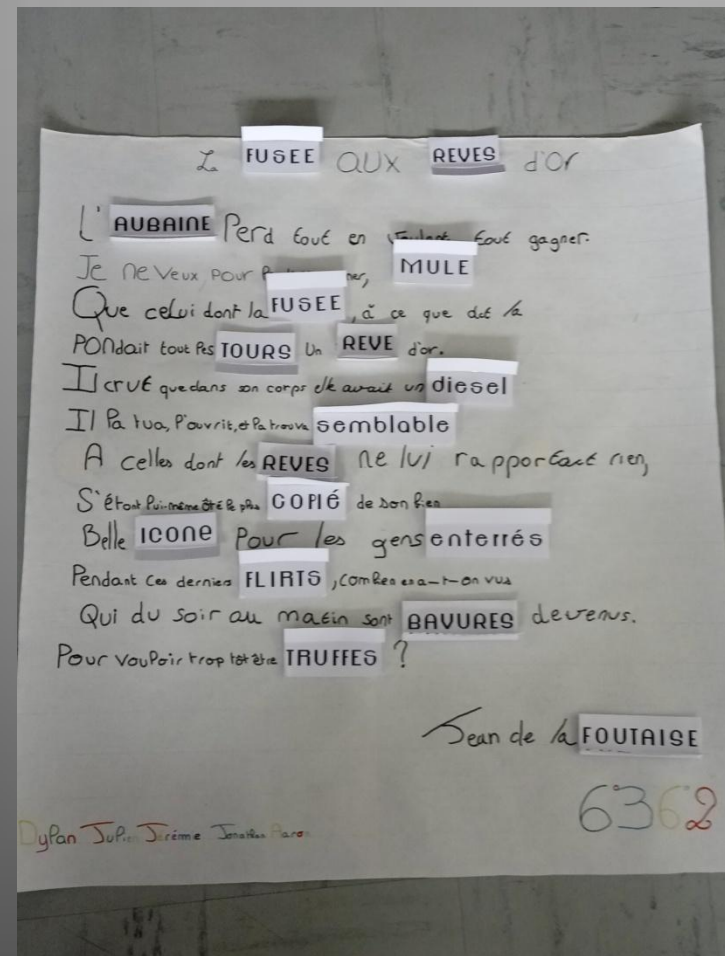 La FUSEE aux REVES d'or
L'AUBAINE Perd tout en voulant tout gagner.
Je ne veux pour MULE
Que celui dont la FUSEE, à ce que dit la
PONdait tout les TOURS Un REVE d'or.
Il crut que dans son corps elle avait un diesel
Il la tua, l'ouvrit, et la trouva semblable
A celles dont les REVES ne lui rapportait rien,
S'étant lui-même ôté le plus COPIÉ de son bien
Belle ICONE Pour les gens enterrés
Pendant ces derniers FLIRTS, combien en a-t-on vus
Qui du soir au matin sont BAVURES devenus.
Pour vouloir trop tôt être TRUFFES ?
Jean de la FOUTAISE
6362
Dylan Julien Jérème Jonathan Aaron